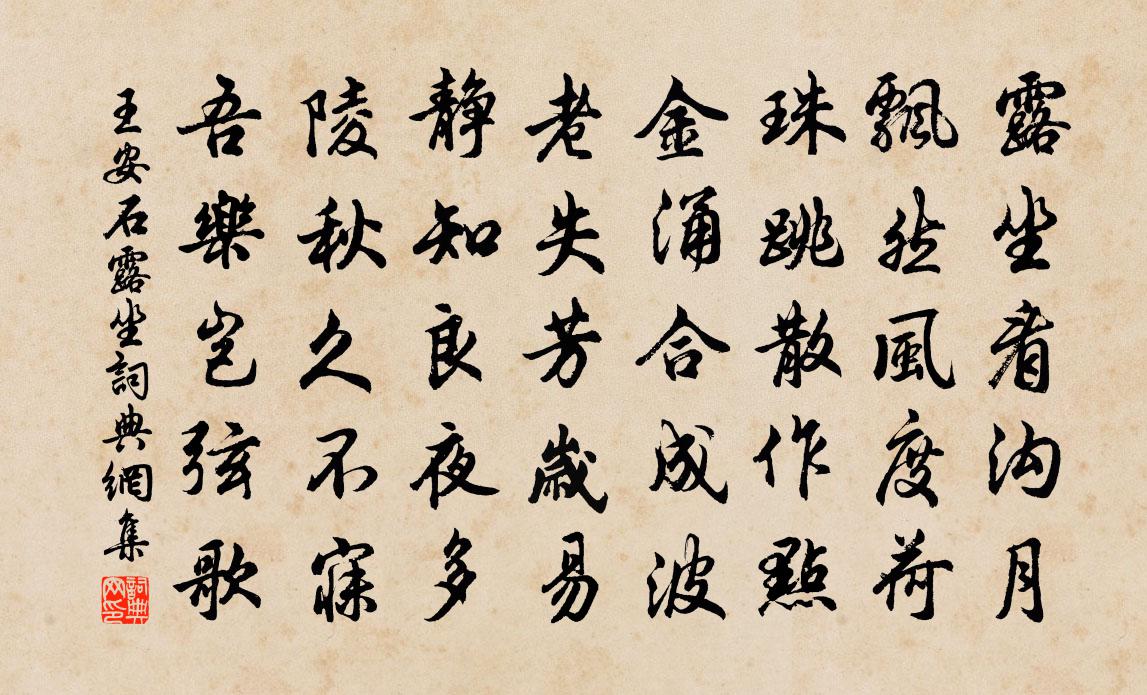 露坐看沟月
飄然風度荷
珠跳散作點
金涌合成波
老失芳歲易
静知良夜多
陵秋久不寐
吾樂豈弦歌
王安石露坐詞典網集
詞典網印